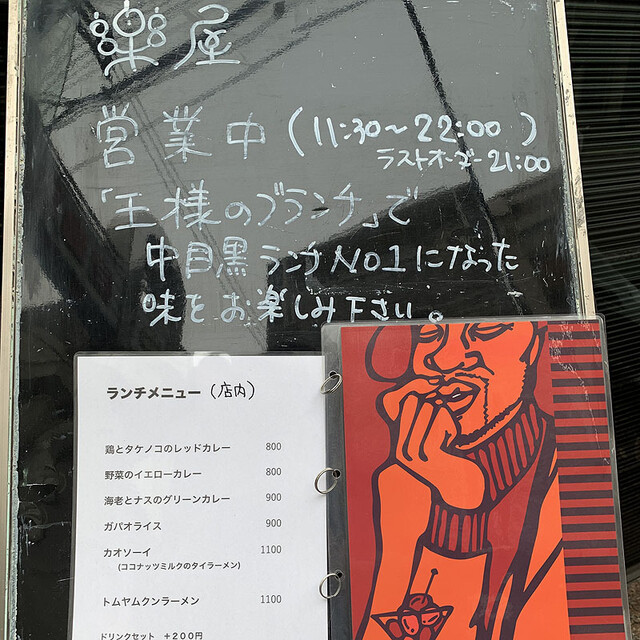 楽屋
営業中（11:30〜22:00）
ラストオーダー21:00
「王様のブランチ」で
中目黒ランチNO1になった
味をお楽しみ下さい。
ランチメニュー（店内）
鶏とタケノコのレッドカレー 800
野菜のイエローカレー 800
海老とナスのグリーンカレー 900
ガパオライス 900
カオソーイ 1100
(ココナッツミルクのタイラーメン)
トムヤムクンラーメン 1100
ドリンクセット ＋200円